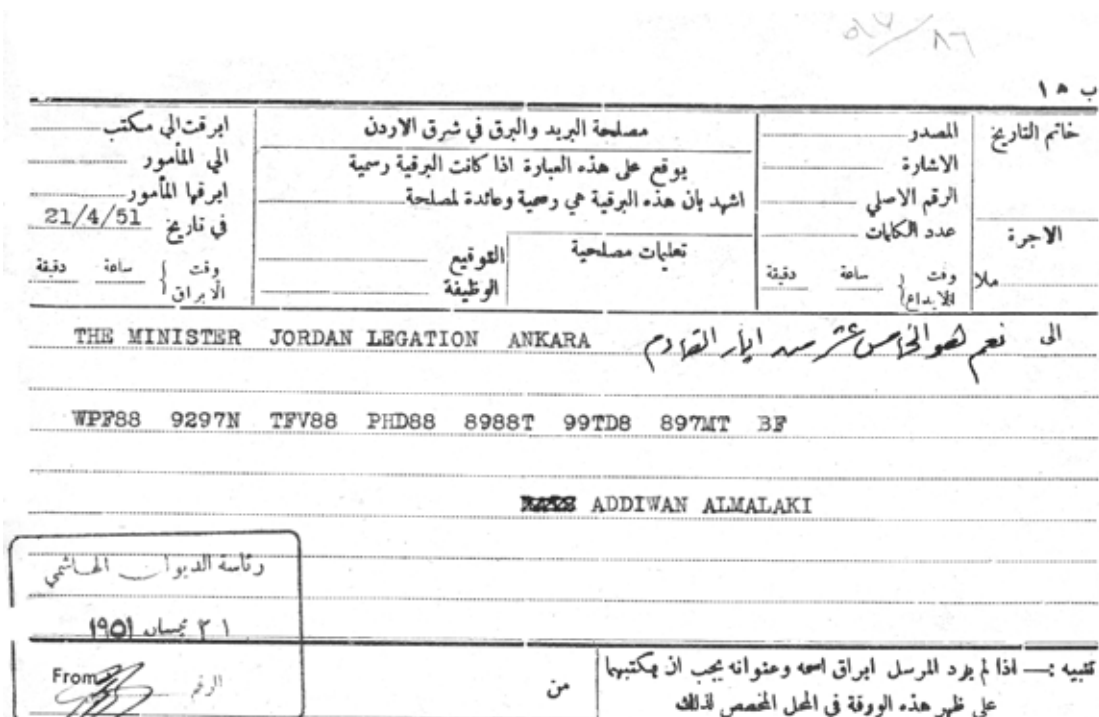 ٨٦
ب ١٥
خاتم التاريخ
الاجرة
ملا
المصدر
الاشارة
الرقم الاصلي
عدد الكلمات
وقت الايداع
ساعة
دقيقة
مصلحة البريد والبرق في شرق الاردن
يوقع على هذه العبارة اذا كانت البرقية رسمية
اشهد بأن هذه البرقية هي رسمية وعائدة لمصلحة
تعليمات مصلحية
التوقيع
الوظيفة
ابرقت الى مكتب
الى المأمور
ابرقها المأمور
في تاريخ 21/4/51
وقت الابراق
ساعة
دقيقة
الى نعم هو الخامس عشر من ايار القادم
THE MINISTER JORDAN LEGATION ANKARA
WPF88 9297N TFV88 PHD88 8988T 99TD8 897MT BF
ADDIWAN ALMALAKI
رئاسة الديوان الهاشمي
٢١ نيسان ١٩٥١
الرقم
From
من
تنبيه :— اذا لم يرد المرسل ابراق اسمه وعنوانه يجب ان يكتبهما
على ظهر هذه الورقة في المحل المخصص لذلك